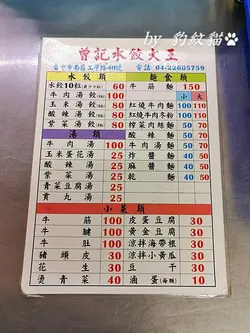 by 豹紋貓
曾記水餃大王
台中市南區工學路40號 電話 04-22605759
水餃類
水餃10粒 60
牛肉湯餃 100
玉米湯餃 80
酸辣湯餃 80
紫菜湯餃 80
湯類
牛肉湯 100
玉米蛋花湯 25
酸辣湯 25
紫菜湯 25
青菜豆腐湯 25
貢丸湯 25
麵食類
牛筋麵 150
小 大
紅燒牛肉麵
紅燒牛肉冬粉
榨菜肉絲麵
酸辣麵
牛肉湯麵
炸醬麵
麻醬麵
乾麵
小菜類
牛筋 100 皮蛋豆腐 30
牛腱 100 黃金豆腐 30
牛肚 100 涼拌海帶根 30
豬頭皮 30 涼拌小黃瓜 30
花生 30 豆干 30
燙青菜 40 油蛋(每顆) 10